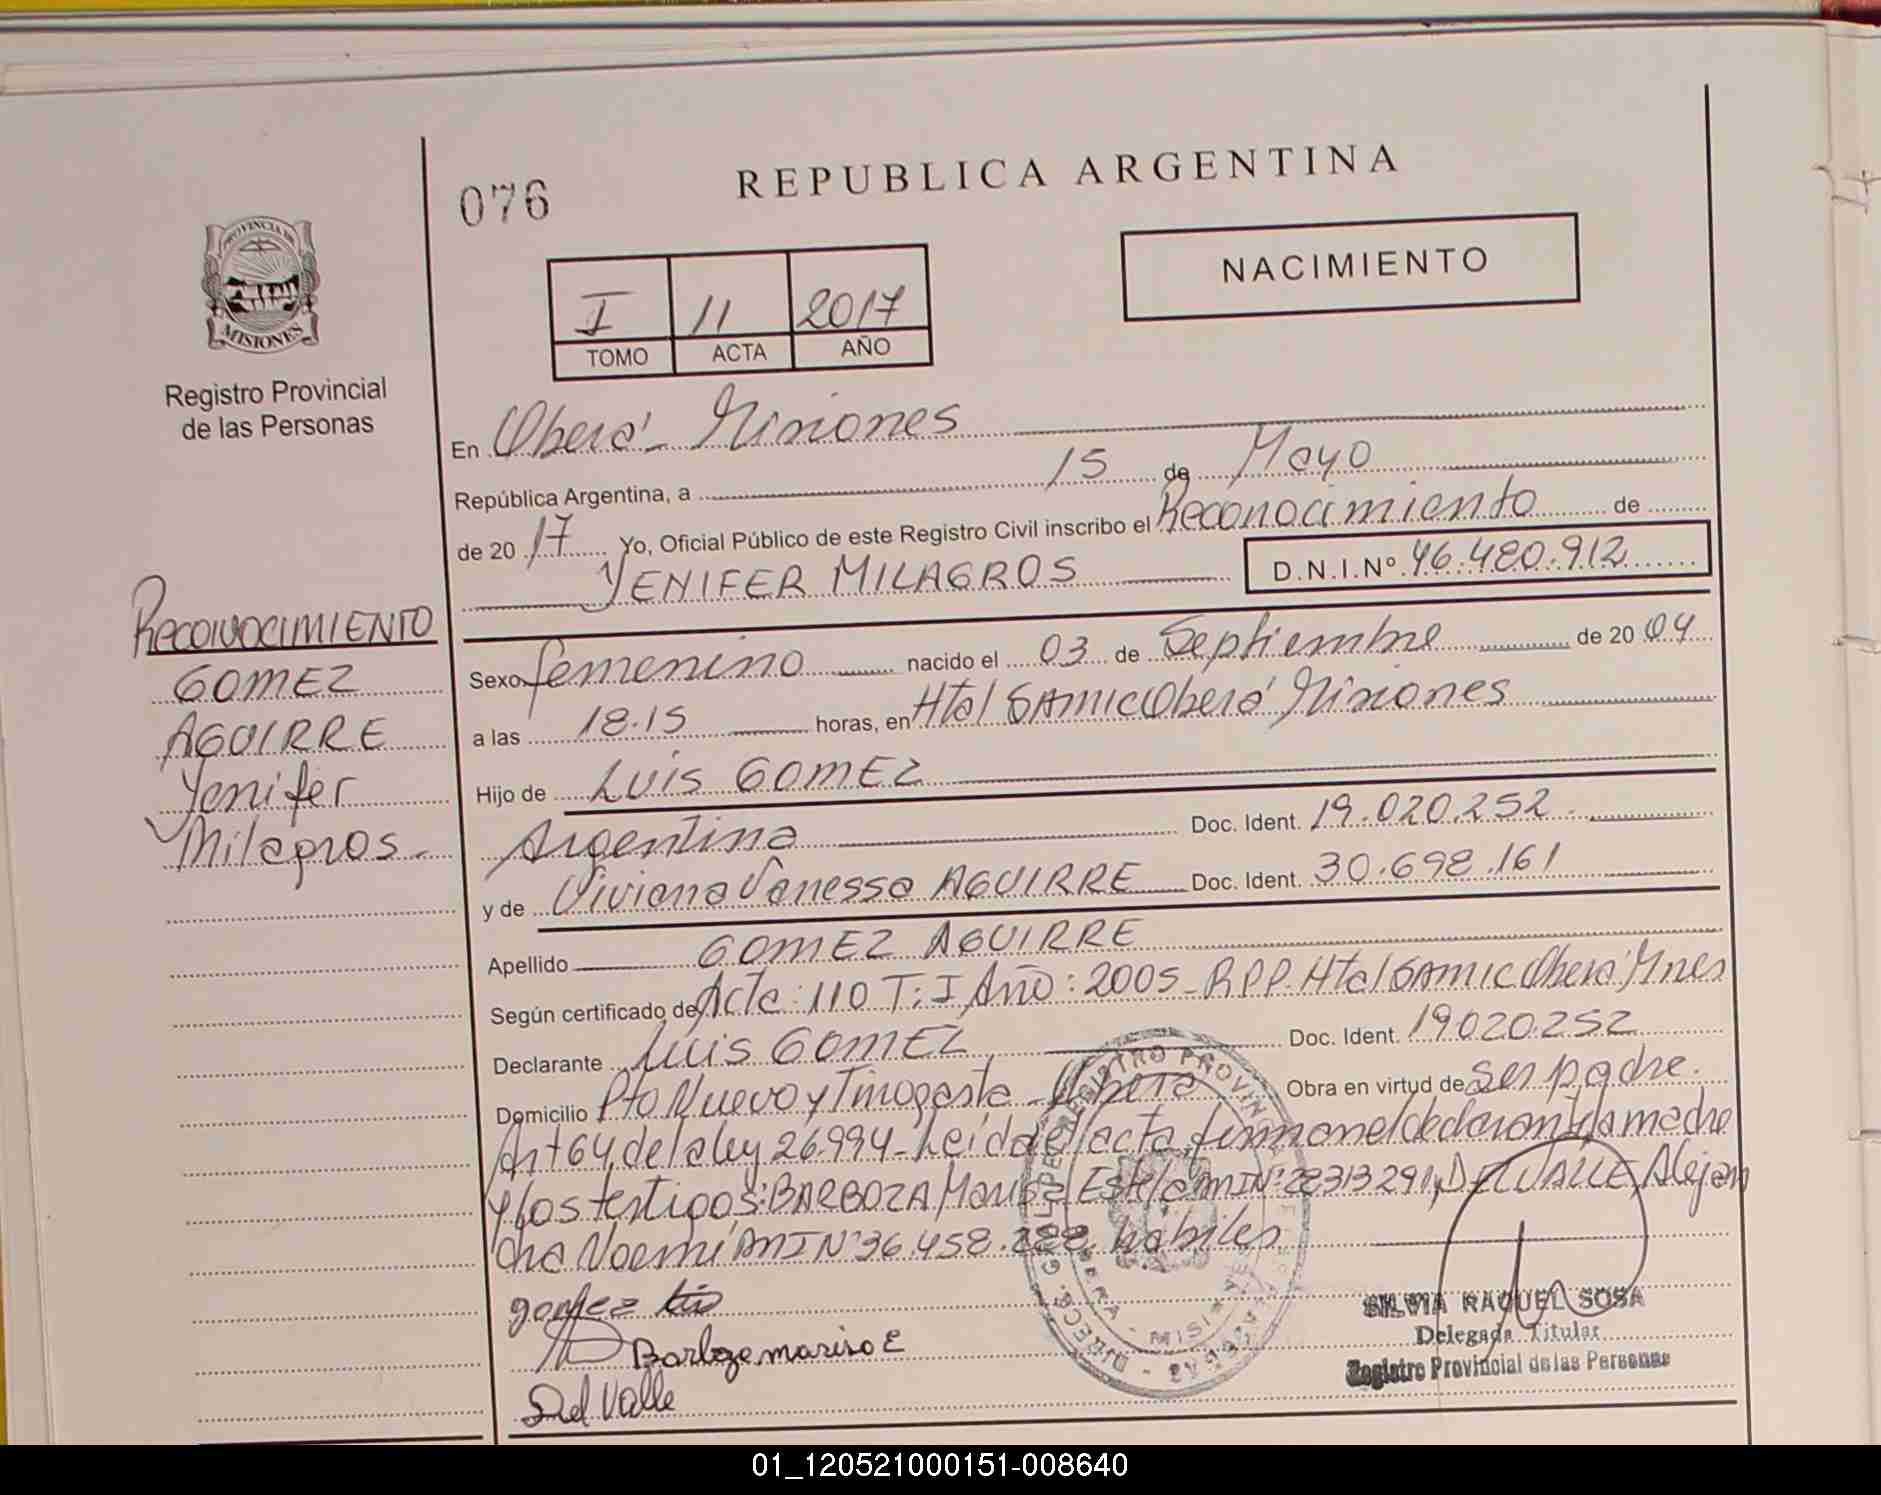 076
REPUBLICA ARGENTINA
PROVINCIA DE
MISIONES
Registro Provincial
de las Personas
NACIMIENTO
I 11 2017
TOMO ACTA AÑO
En Oberá - Misiones
República Argentina, a 15 de Mayo
de 20 17 Yo, Oficial Público de este Registro Civil inscribo el Reconocimiento de
YENIFER MILAGROS D.N.I.Nº 46.480.912
RECONOCIMIENTO
GOMEZ
AGUIRRE
Yenifer
Milagros.-
Sexo femenino nacido el 03 de Septiembre de 20 04
a las 18.15 horas, en Htal SAMIC Oberá Misiones
Hijo de LUIS GOMEZ
Argentina Doc. Ident. 19.020.252.
y de Viviana Vanessa AGUIRRE Doc. Ident. 30.698.161
Apellido GOMEZ AGUIRRE
Según certificado de Acta: 110 T: I Año: 2005 - RPP. Htal SAMIC Oberá Mnes
Declarante Luis GOMEZ Doc. Ident. 19.020.252
Domicilio Pto Nuevo y Tinogasta - Oberá Obra en virtud de ser padre.
Art 64, de la ley 26.994 - Leída el acta, firman el declarante, la madre
y los testigos: BARBOZA Marisa Estela MIN: 22313291, DEL VALLE, Alejan
dra Noemí MIN° 36.458.228 habiles
gomez Luis
Barboza mariso E
Del Valle
SILVIA RAQUEL SOSA
Delegada Titular
Registro Provincial de las Personas
01_120521000151-008640